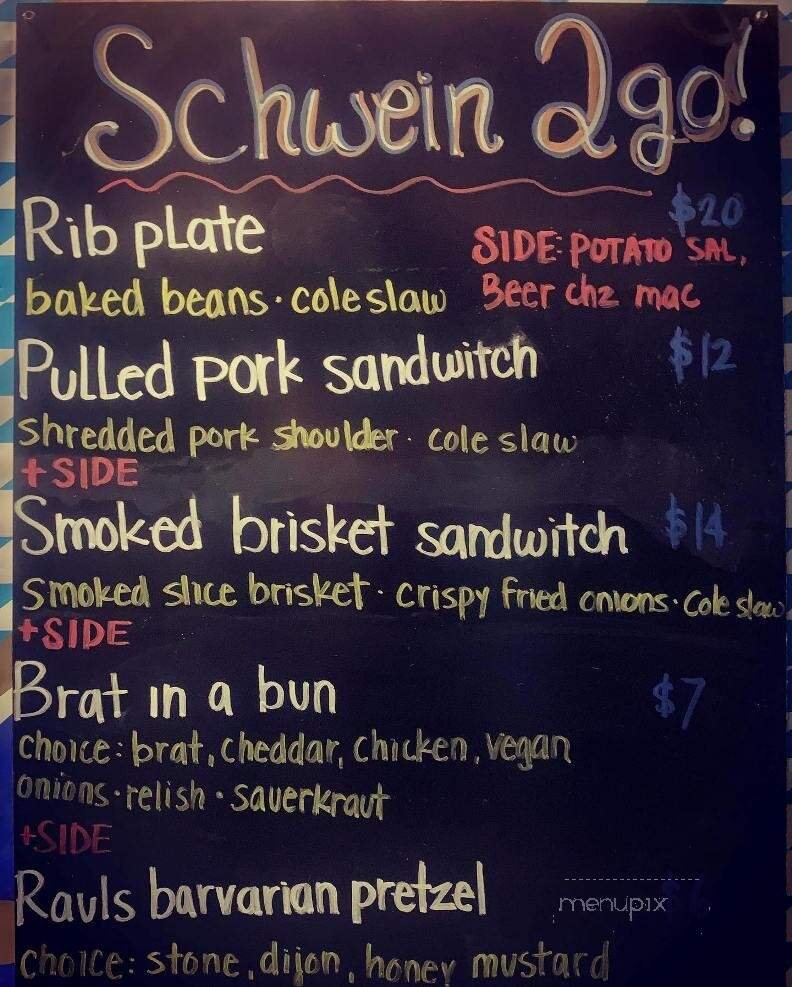 Schwein 2go!
Rib plate $20
SIDE: POTATO SAL,
baked beans · coleslaw Beer chz mac
Pulled pork sandwitch $12
shredded pork shoulder · cole slaw
+SIDE
Smoked brisket sandwitch $14
Smoked slice brisket · crispy fried onions · Cole slaw
+SIDE
Brat in a bun $7
choice: brat, cheddar, chicken, vegan
onions · relish · sauerkraut
+SIDE
Rauls barvarian pretzel
menupix
choice: stone, dijon, honey mustard